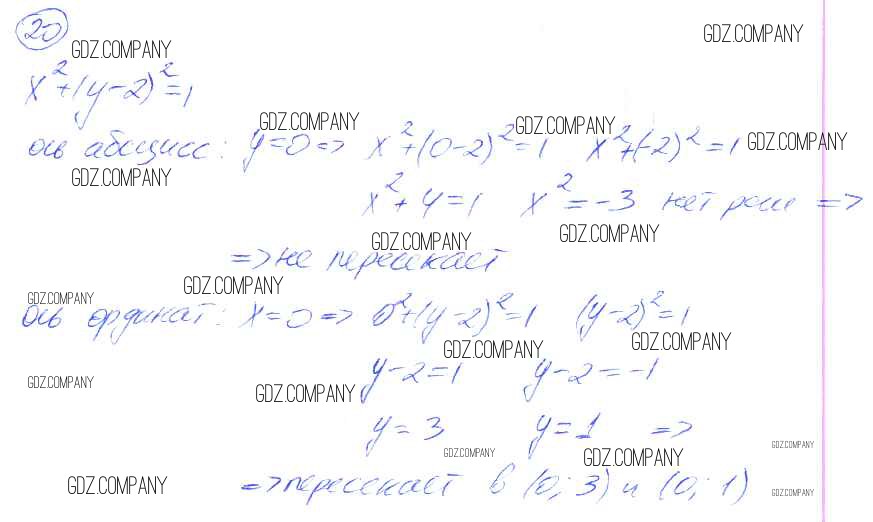 20
GDZ.COMPANY GDZ.COMPANY
x²+(y-2)²=1
GDZ.COMPANY GDZ.COMPANY
ось абсцисс: y=0 => x²+(0-2)²=1 x²+(-2)²=1 GDZ.COMPANY
GDZ.COMPANY
x²+4=1 x²=-3 нет реш =>
GDZ.COMPANY GDZ.COMPANY
=> не пересекает
GDZ.COMPANY GDZ.COMPANY
ось ординат: x=0 => 0²+(y-2)²=1 (y-2)²=1
GDZ.COMPANY GDZ.COMPANY
y-2=1 y-2=-1
GDZ.COMPANY GDZ.COMPANY
y=3 y=1 =>
GDZ.COMPANY GDZ.COMPANY GDZ.COMPANY
=> пересекает в (0; 3) и (0; 1)
GDZ.COMPANY GDZ.COMPANY